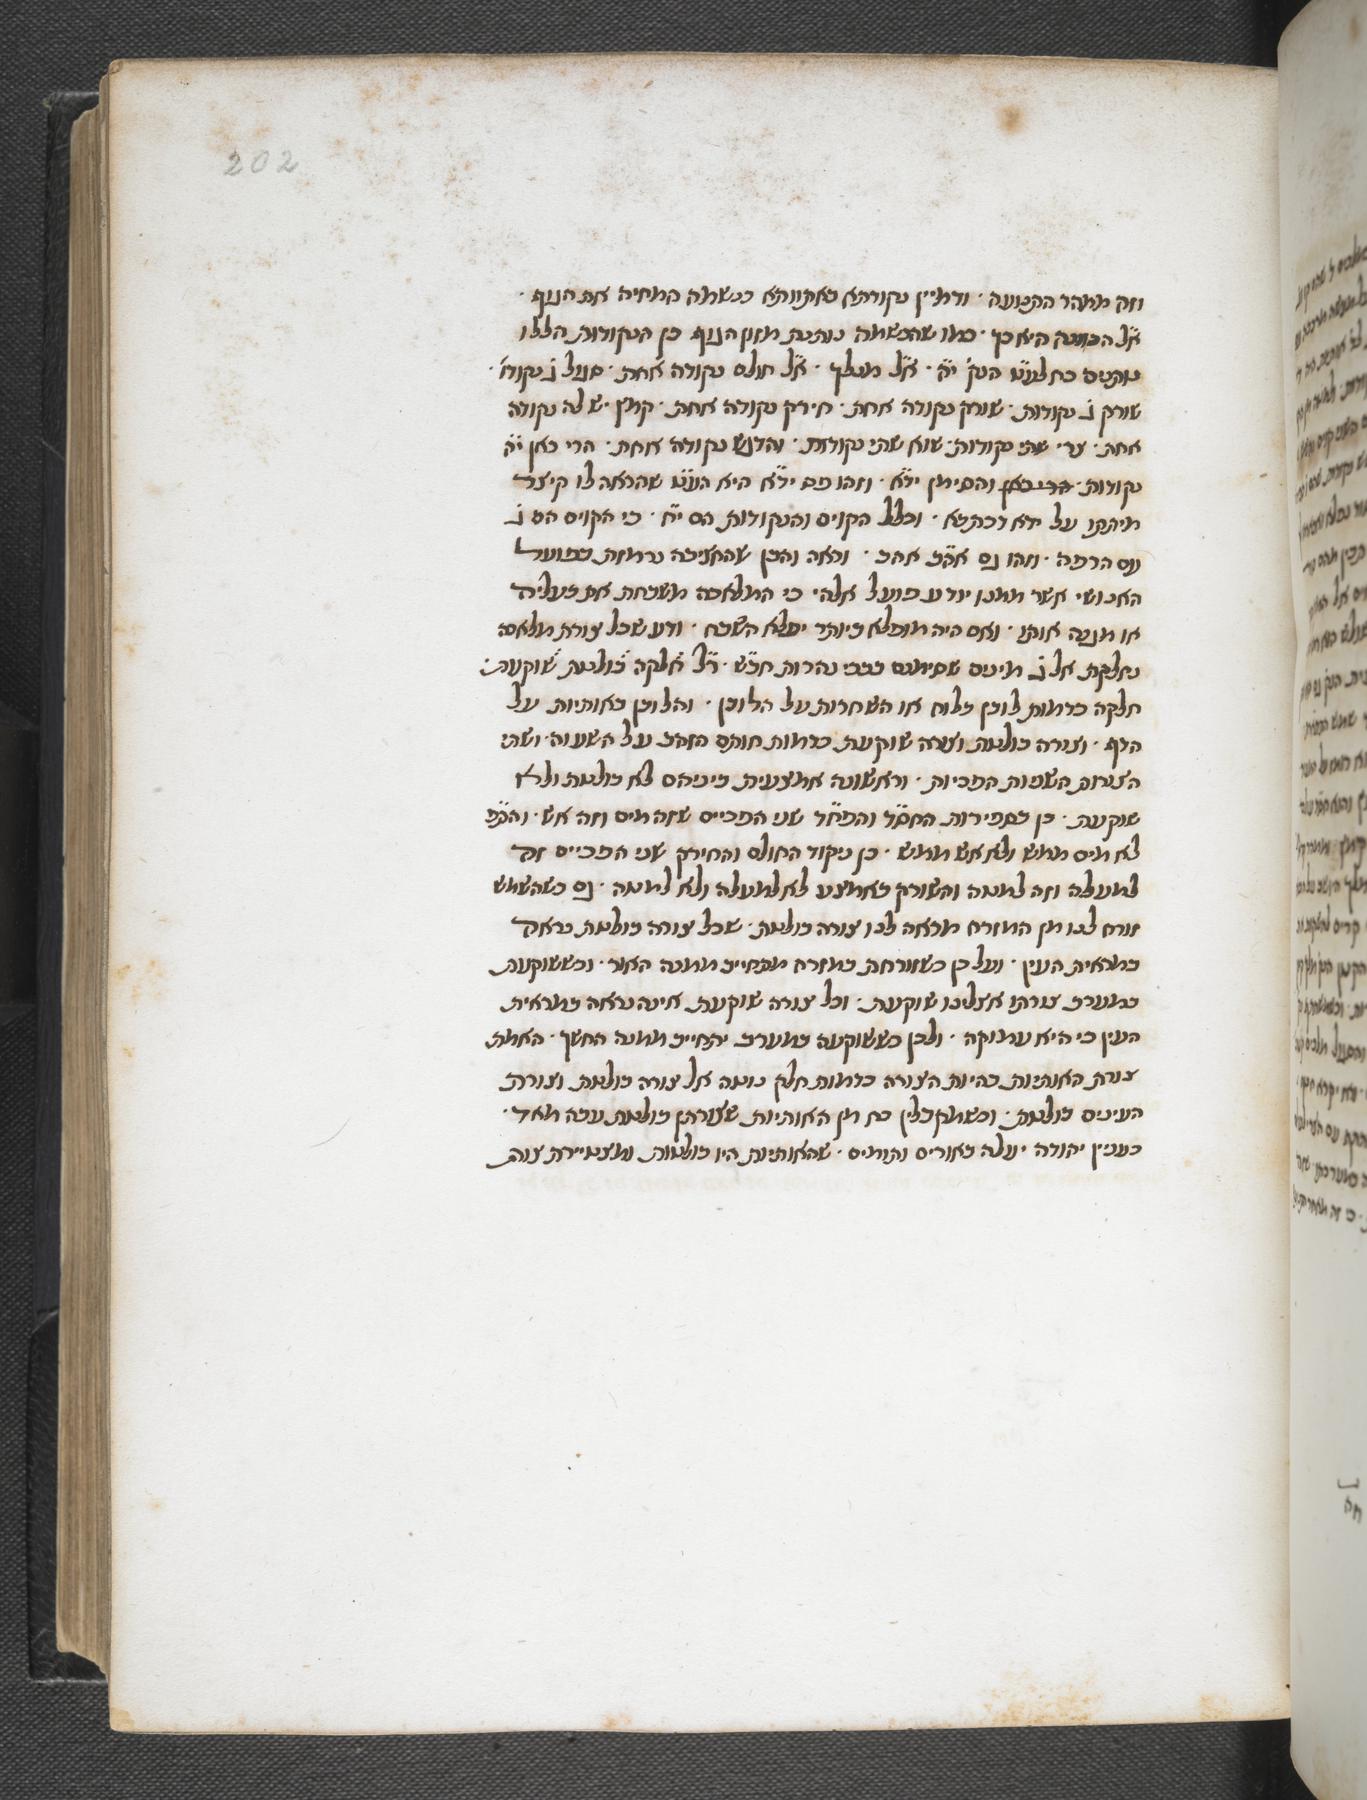 202
וזה ממהר התנועה · ודמיין נקודתא באתוותא כנשמה המחיה את הגוף ·
א״ל הכוונה היא כך · כמו שהנשמה נותנת מזון הגוף כן הנקודות הללו
נותנים כח · א״ל חולם נקודה אחת · סגול ג נקודו׳ ·
שורק ג נקודות · שורק נקודה אחת · חירק נקודה אחת · קמץ יש לה נקודה
אחת · צרי שתי נקודות · שוא שתי נקודות · והדגש נקודה אחת · הרי כאן י״ה
נקודות הרי כאן והסימן יד״א · וזהו פס יד״א היא שהראה לו קיצר
מיתתו על ידא דכתבא · וכלל הקוים והנקודות הם י״ח · כי הקוים הם ג
עם הרפה · וזהו גם אהב אהב · וראה והבן שהחציבה נרמזת בפועל
האנושי אשר ממנו יודע פועל אלהי כי המלאכה משבחת את בעליה
או מגנה אותו · ואם היה מופלא ביותר יפלא השבח · ודע שכל צורת מלאכה
נחלקת אל ג מינים שסימנם בבבי נהרות חב״ש · ר״ל חלקה בולטת שוקעת ·
חלקה כדמות לובן בלוח או השחרות על הלובן · והלובן באותיות על
הדף · וצורה בולטת וצורה שוקעת כדמות חותם הזהב על השעוה · ושתי
הצורות השפות הפכיות · וראשונה אמצעית ביניהם לא בולטת ולא
שוקעת · כן בספירות החס״ד והפח״ד שני הפכיים שזה מים וזה אש ·
לא מים ממש ולא אש ממש · כן ניקוד החולם והחירק שני הפכיים זה
למעלה וזה למטה והשורק באמצע לא למעלה ולא למטה · גם כשהשמש
זורח לנו מן המזרח מראה לנו צורה בולטת · שכל צורה בולטת נראה
במראית העין · ועל כן כשזורחת במזרח מתחייב ממנה האור · וכששוקעת
במערב צורתו אצלינו שוקעת · וכל צורה שוקעת אינה נראה במראית
העין כי היא עמוקה · ולכן כששוקעה במערב יתחייב ממנה החשך · האמת
צורת האותיות בהיות הצורה כדמות חלק נוטה אל צורה בולטת וצורת
העינים בולטת · וכשמקבלין כח מן האותיות שצורתן בולטת עבה מאד ·
כענין יהודה יעלה באורים ותומים · שהאותיות היו בולטות ומצטיירת צורת